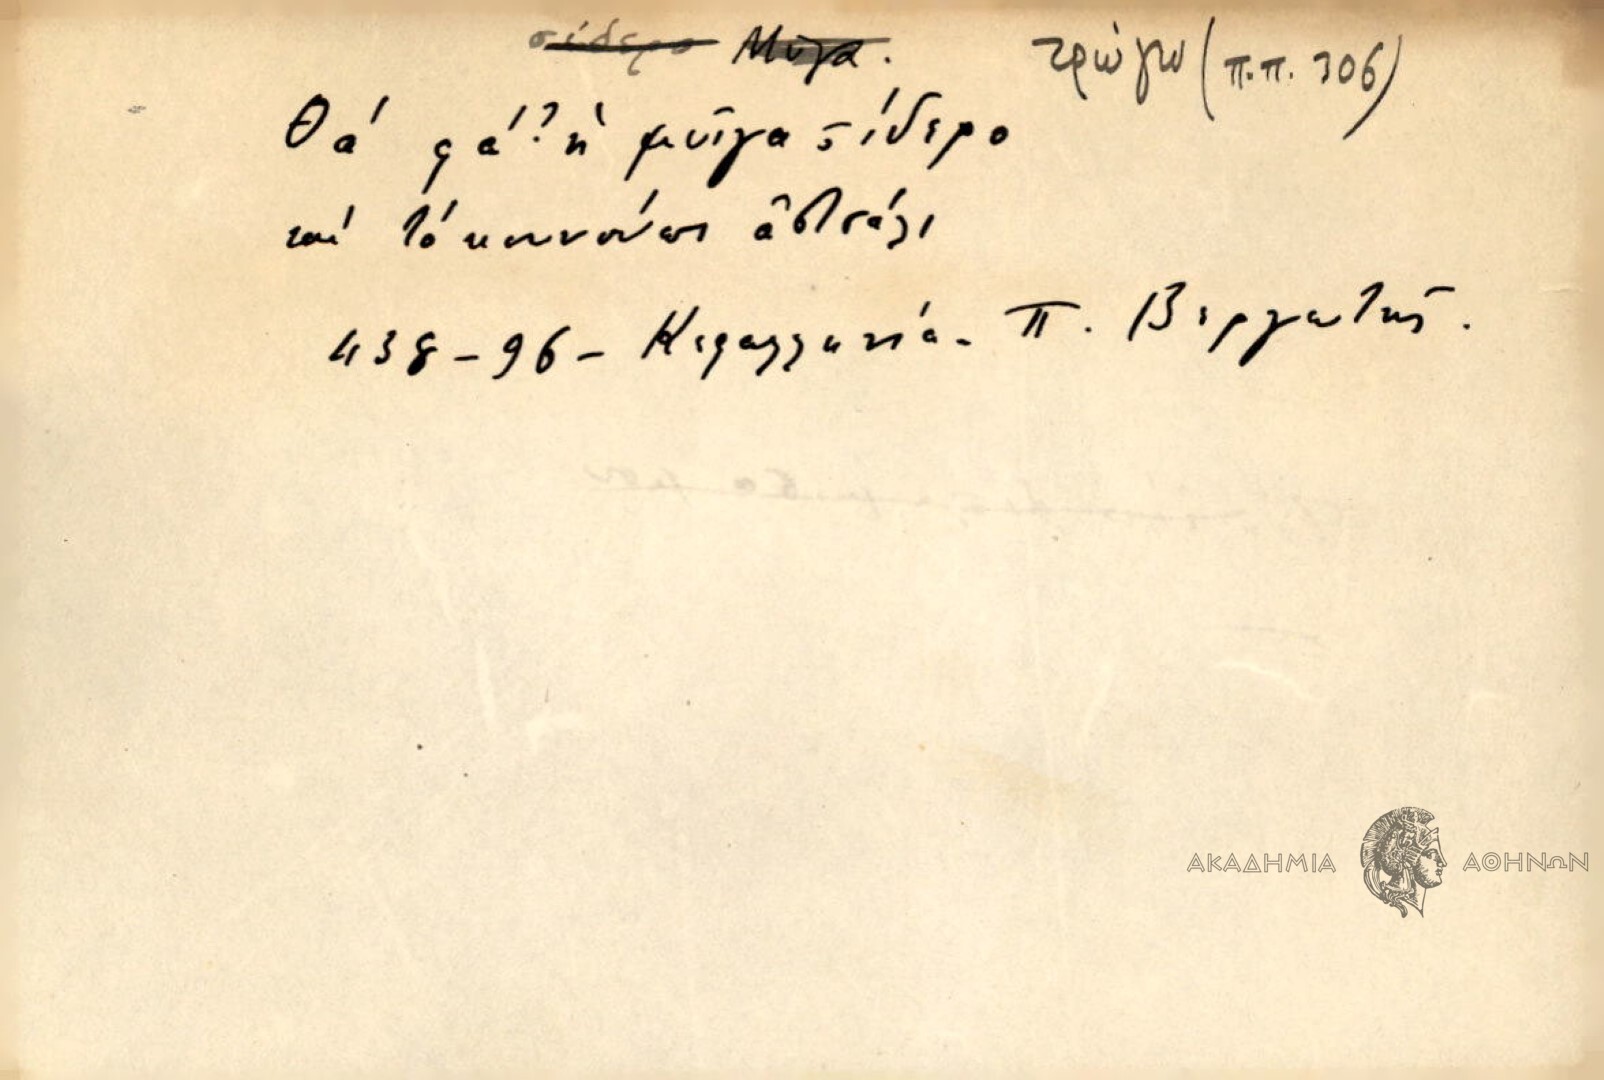 σίδερο Μυῖγα. τρώγω (π.π. 306)
Θά φά' ἡ μυῖγα σίδερο
καί τό κουνούπι ἀτσάλι
438-96- Κεφαλληνία. Π. Βεργωτῆς.
ΑΚΑΔΗΜΙΑ ΑΘΗΝΩΝ